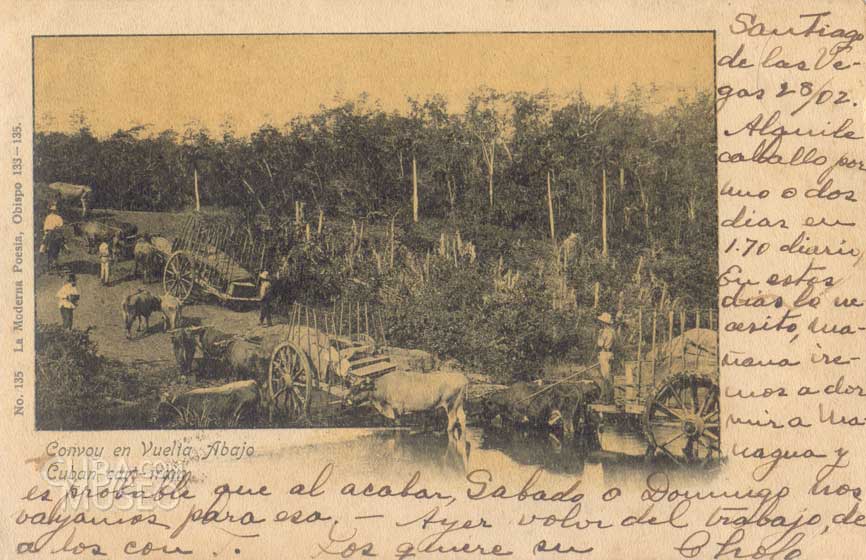 No. 135 La Moderna Poesia, Obispo 133-135.
Convoy en Vuelta Abajo
Cuban cart train
CUBA MUSEO
.COM
Santiago
de las Ve-
gas 28/02.
Alquile
caballo por
uno o dos
dias en
1.70 diario,
En estos
dias lo ne
cesito, ma
ñana ire-
mos a dor
mir a Ma
nagua y
es probable que al acabar, Sabado o Domingo nos
vayamos para esa. - Ayer volvi del trabajo, de
a los con
Los quiere su